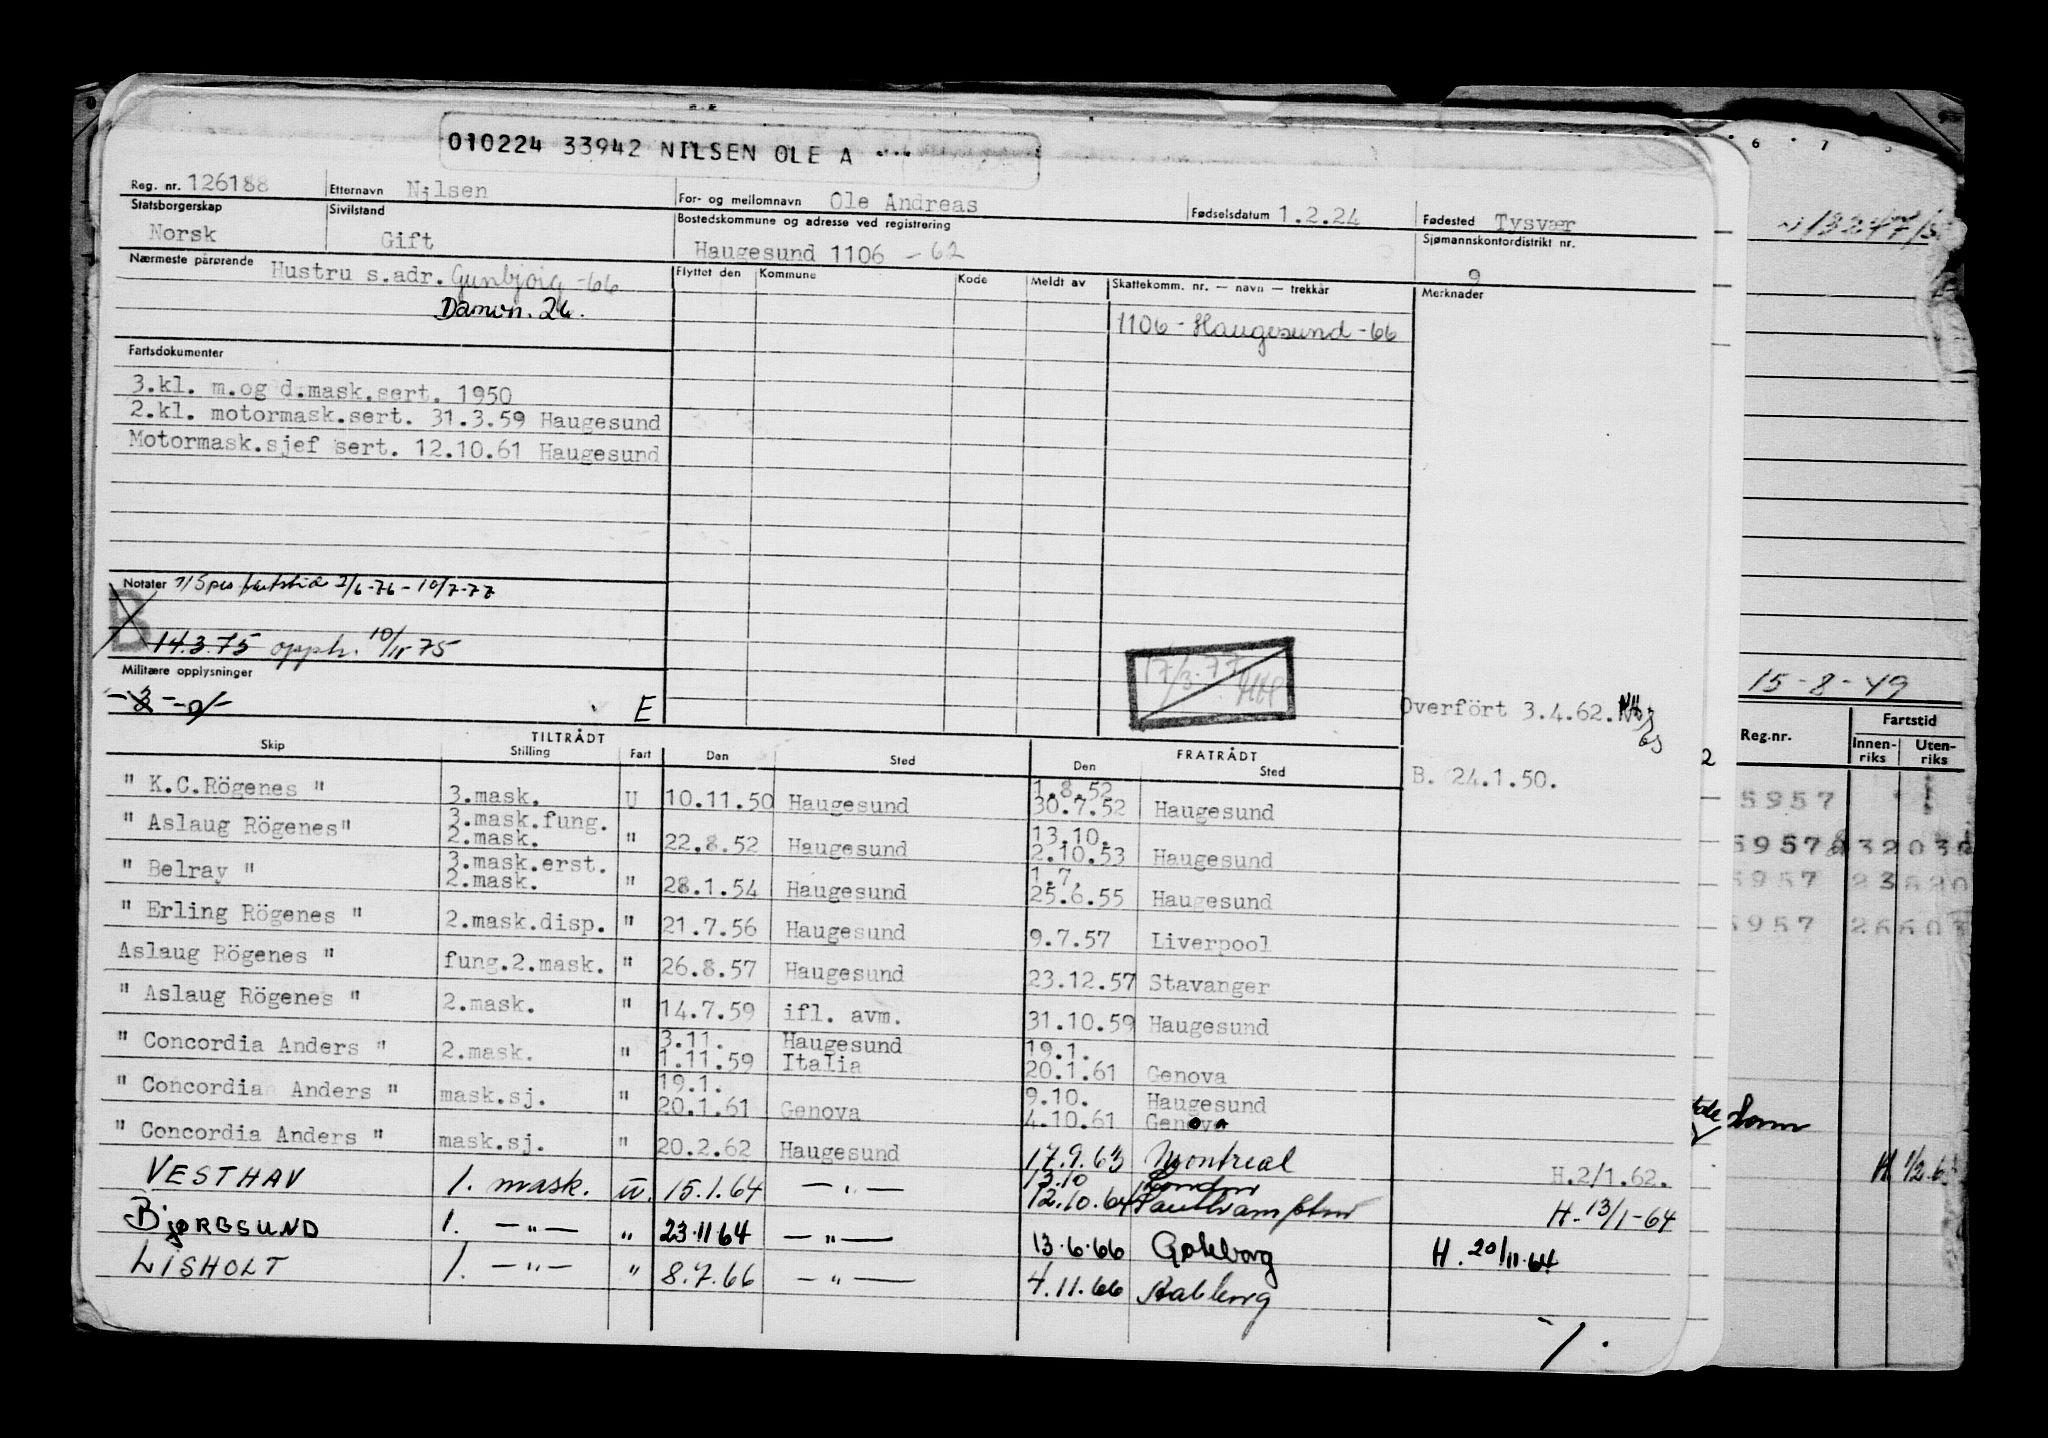 010224 33942 NILSEN OLE A
Reg. nr. 126188 Etternavn Nilsen For- og mellomnavn Ole Andreas Fødselsdatum 1.2.24 Fødested Tysvær
Statsborgerskap Norsk Sivilstand Gift Bostedskommune og adresse ved registrering Haugesund 1106 - 62 Sjømannskontordistrikt nr. 9
Nærmeste pårørende Hustru s.adr. Gunbjørg -66 Flyttet den Kommune Kode Meldt av Skattekomm. nr. — navn — trekkår Merknader
Damvn. 26. 1106 - Haugesund - 66
Fartsdokumenter
3.kl. m.og d.mask.sert. 1950
2.kl. motormask.sert. 31.3.59 Haugesund
Motormask.sjef sert. 12.10.61 Haugesund
Notater 2/6-76 - 10/7-77
B 14.3.75 opph. 10/11 75
17/3-77
Militære opplysninger
E
Overfört 3.4.62.
TILTRÅDT FRATRÅDT
Skip Stilling Fart Den Sted Den Sted
B. 24.1.50.
" K.C.Rögenes " 3.mask. U 10.11.50 Haugesund 1.8.52 30.7.52 Haugesund
" Aslaug Rögenes" 3.mask.fung. 2.mask. " 22.8.52 Haugesund 13.10. 2.10.53 Haugesund
" Belray " 3.mask.erst. 2.mask. " 28.1.54 Haugesund 1.7. 25.6.55 Haugesund
" Erling Rögenes " 2.mask.disp. " 21.7.56 Haugesund 9.7.57 Liverpool
Aslaug Rögenes " fung.2.mask. " 26.8.57 Haugesund 23.12.57 Stavanger
" Aslaug Rögenes " 2.mask. " 14.7.59 ifl. avm. 31.10.59 Haugesund
" Concordia Anders " 2.mask. " 3.11. 1.11.59 Haugesund Italia 19.1. 20.1.61 Genova
" Concordia Anders " mask.sj. " 19.1. 20.1.61 Genova 9.10. 4.10.61 Haugesund Genova
" Concordia Anders " mask.sj. " 20.2.62 Haugesund 17.9.63 Montreal H.2/1.62.
VESTHAV 1. mask. u. 15.1.64 — " — 13.10 12.10.64 London Southampton H. 13/1-64
BjØRGSUND 1. — " — " 23.11.64 — " — 13.6.66 Gøteborg H. 20/11.64
LISHOLT 1. — " — " 8.7.66 — " — 4.11.66 Aalborg
6 7
15-8-49
Reg.nr. Fartstid
Innen-riks Uten-riks
2
5957
5957
5957
5957